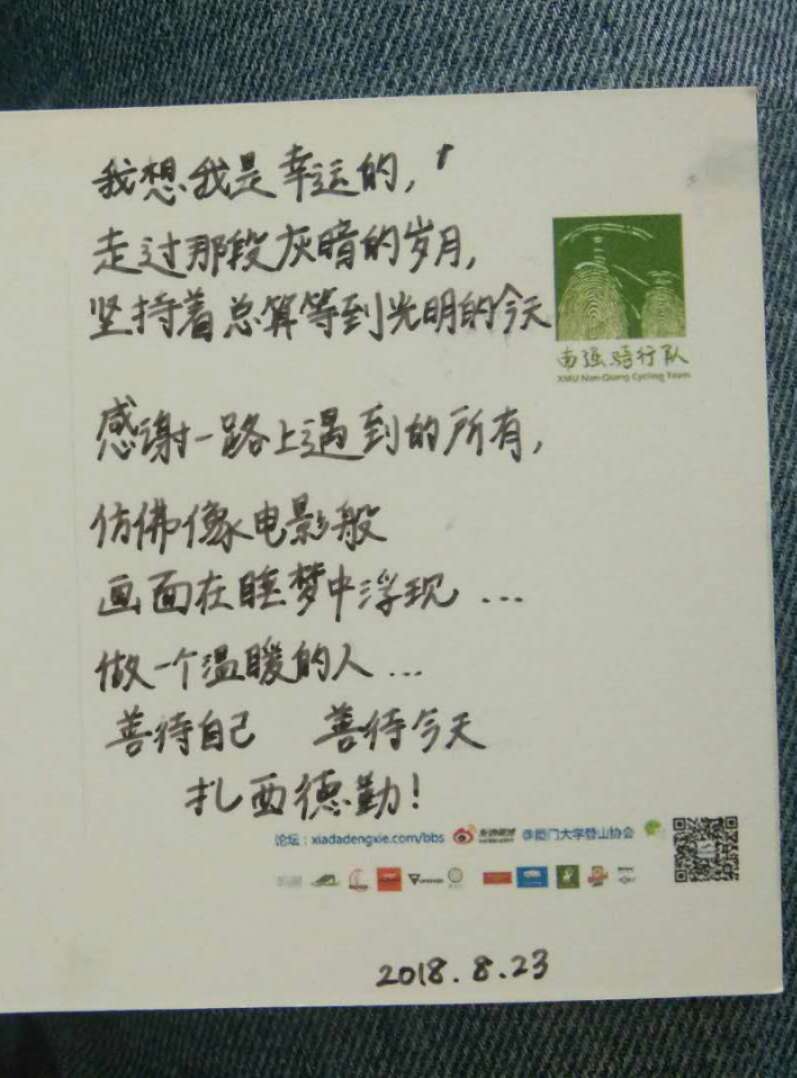 我想我是幸运的，
走过那段灰暗的岁月，
坚持着总算等到光明的今天
南强骑行队
XMU Nan-Qiang Cycling Team
感谢一路上遇到的所有，
仿佛像电影般
画面在睡梦中浮现...
做一个温暖的人...
善待自己 善待今天
扎西德勒！
论坛：xiadadengxie.com/bbs @厦门大学登山协会
2018.8.23